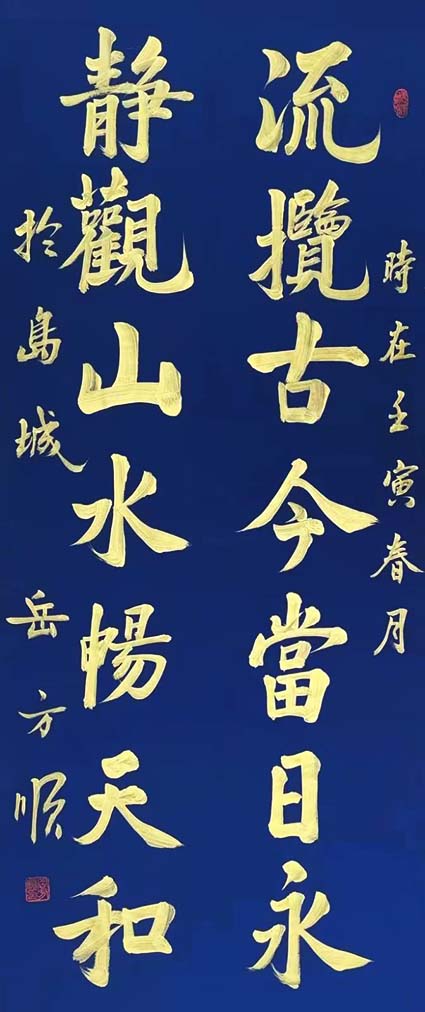 時在壬寅春月
流攬古今當日永
静觀山水暢天和
於島城
岳方順